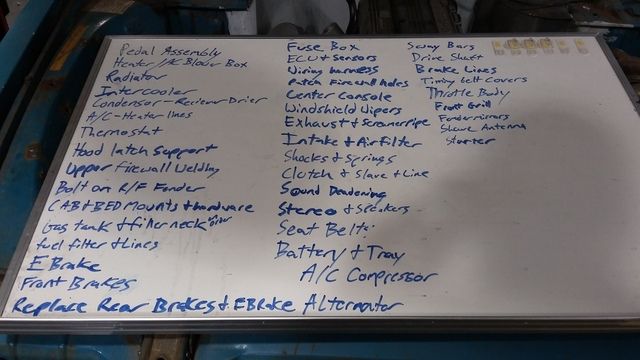 Pedal Assembly
Heater/AC Blower Box
Radiator
Intercooler
Condensor - Reciever Drier
A/C - Heater lines
Thermostat
Hood latch Support
Upper firewall Welding
Bolt on R/F Fender
CAB & BED mounts & hardware
Gas tank & filler neck
fuel filter & Lines
E Brake
Front Brakes
Replace Rear Brakes & EBrake
Fuse Box
ECU & Sensors
Wiring harness
Patch Firewall holes
Center Console
Windshield Wipers
Exhaust & Screamer pipe
Intake & Air filter
Shocks & Springs
Clutch & Slave & Line
Sound Deadening
Stereo & Speakers
Seat Belts
Battery & Tray
A/C Compressor
Alternator
Sway Bars
Drive Shaft
Brake Lines
Timing belt Covers
Throttle Body
Front Grill
Fender mirrors
Antenna
Starter